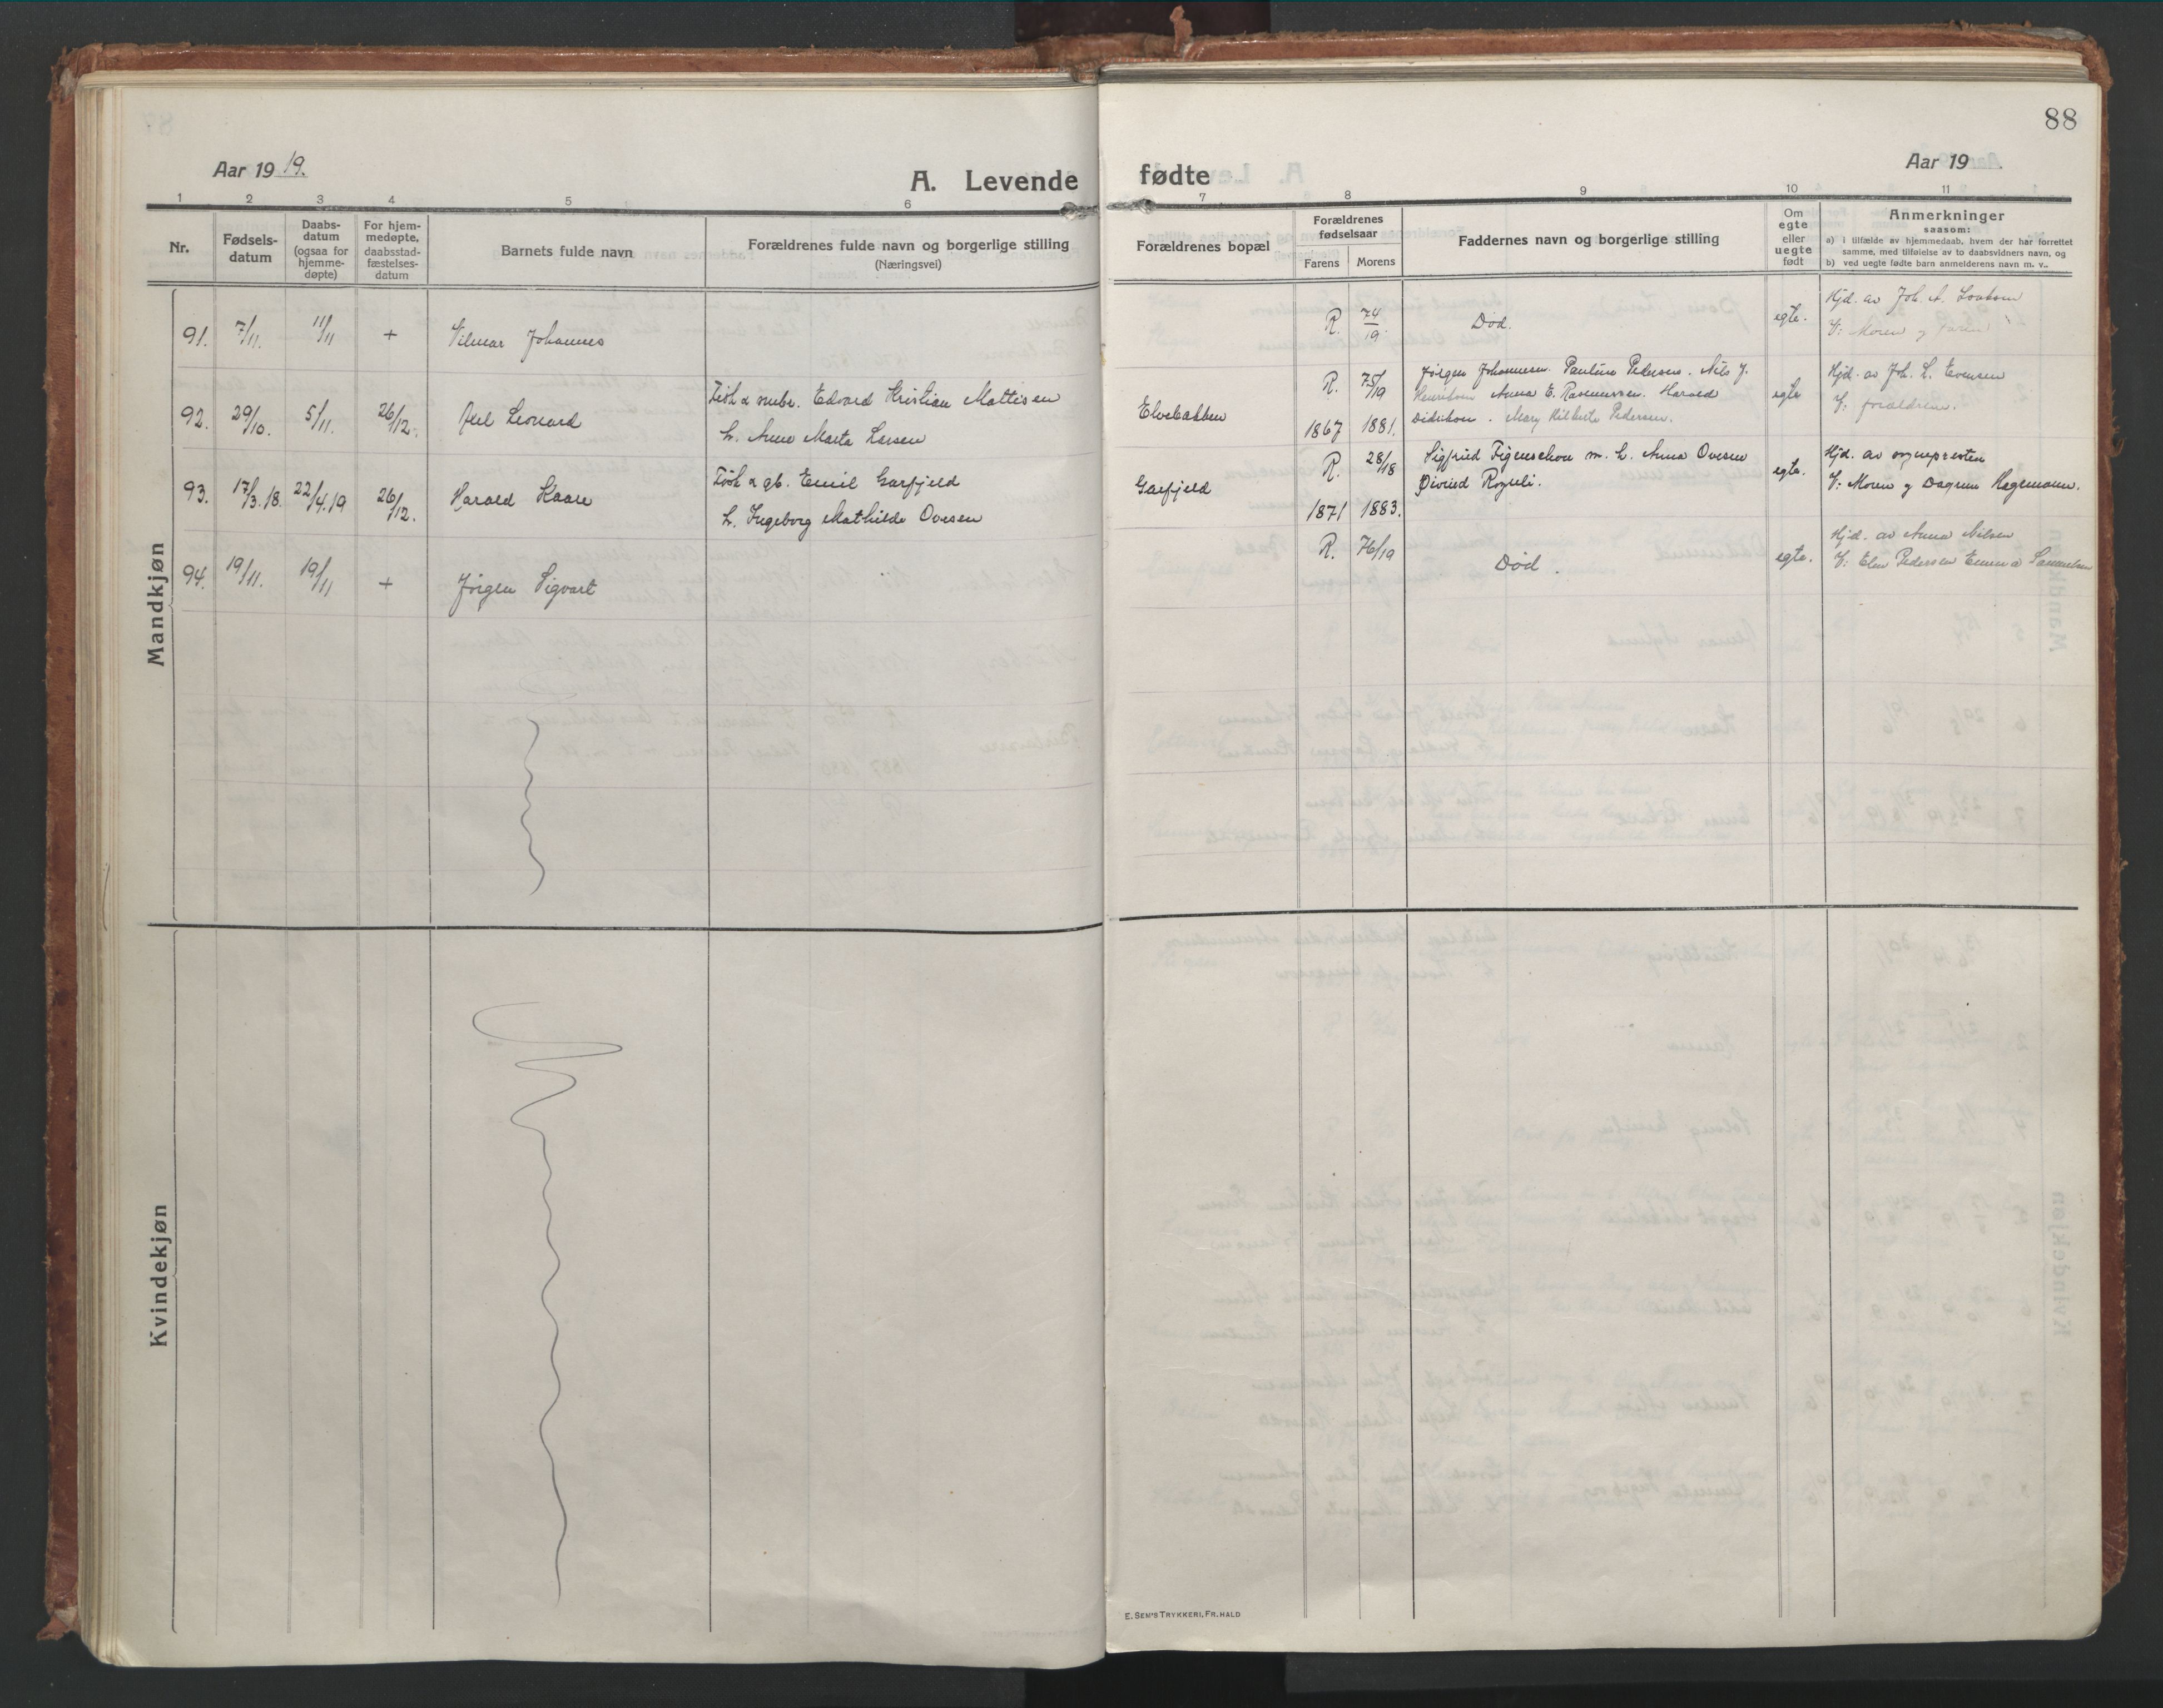 88
Aar 19 19.
A. Levende fødte
Aar 19
1 2 3 4 5 6 7 8 9 10 11
Nr.
Fødsels-
datum
Daabs-
datum
(ogsaa for
hjemme-
døpte)
For hjem-
medøpte,
daabsstad-
fæstelses-
datum
Barnets fulde navn
Forældrenes fulde navn og borgerlige stilling
(Næringsvei)
Forældrenes bopæl
Forældrenes
fødselsaar
Farens Morens
Faddernes navn og borgerlige stilling
Om
egte
eller
uegte
født
Anmerkninger
saasom:
a) i tilfælde av hjemmedaab, hvem der har forrettet
samme, med tilføielse av to daabsvidners navn, og
b) ved uegte fødte barn anmelderens navn m. v..
Mandkjøn
91. 7/11. 11/11 + Vilmar Johannes R. 74/19 Død. egte. Hjd. av Joh. A.
V: Moren og faren
92. 29/10. 5/11. 26/12. Axel Leonard
Fisk & smbr. Edvard Kristian Mattisen
h. Anna Marta Larsen
Elvebakken R. 75/19
1867 1881.
Jørgen Johannesen. Pauline Pedersen. Nils J.
Henriksen Anna E. Rasmussen. Harald
Didriksen. Mary Hilberte Pedersen.
egte Hjd. av Joh. L. Evensen
V: forældrene.
93. 17/3.18. 22/4.19 26/12. Harald Kaare
Fisk & gb. Emil Garfjeld
h. Ingeborg Mathilde Ovesen
Garfjeld R. 28/18
1871 1883.
Sigfried Figenschou m. h. Anna Ovesen
Øivind Rognli.
egte. Hjd. av sognepresten
V: Moren og Dagrun Hagemann.
94. 19/11. 19/11 + Jørgen Sigvart R. 76/19 Død. egte. Hjd. av Anna Nilsen
V: Elen Pedersen Emma Samuelsen
Kvindekjøn
E. SEM'S TRYKKERI, FR.HALD